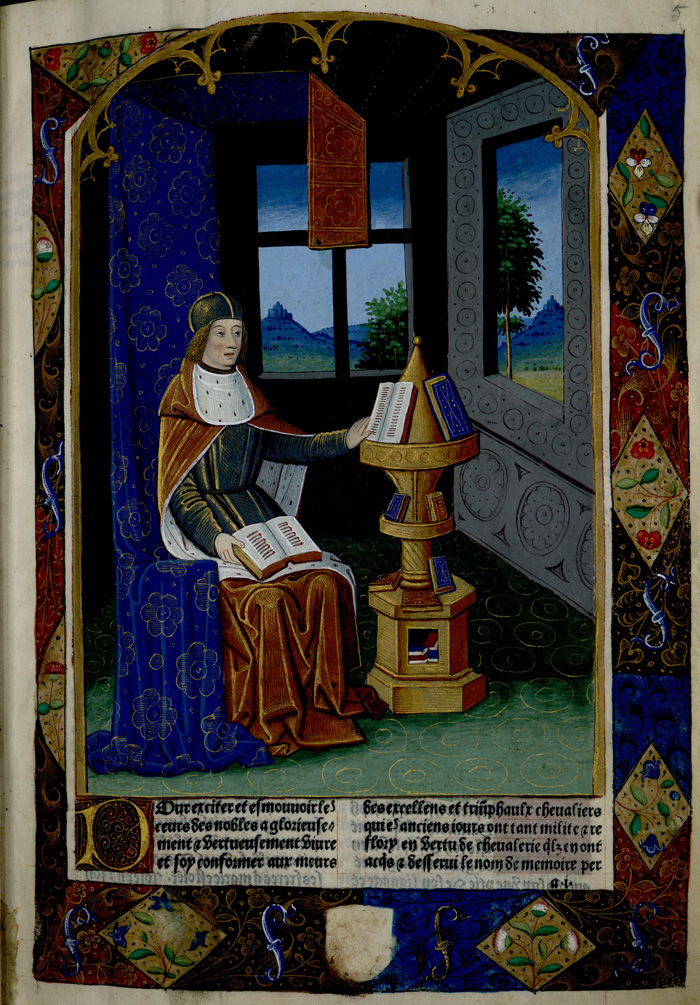 5
Pour exciter et esmouuoir les
ceurs des nobles a glorieuse/
ment & vertueusement viure
et soy conformer aux meurs
des excellens et triūphaulx cheualiers
qui es anciens iours ont tant milite & re
flory en vertu de cheualerie qlz en ont
acqs & desserui le nom de memoire per
a.i.